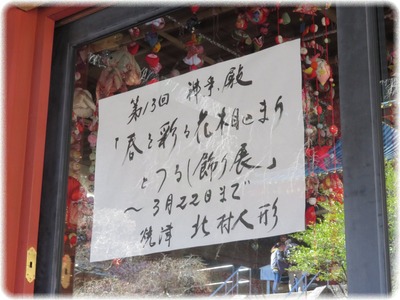 第13回 神楽殿
「春を彩る花桐とまり
とつるし飾り展」
～3月22日まで
焼津 北村人形